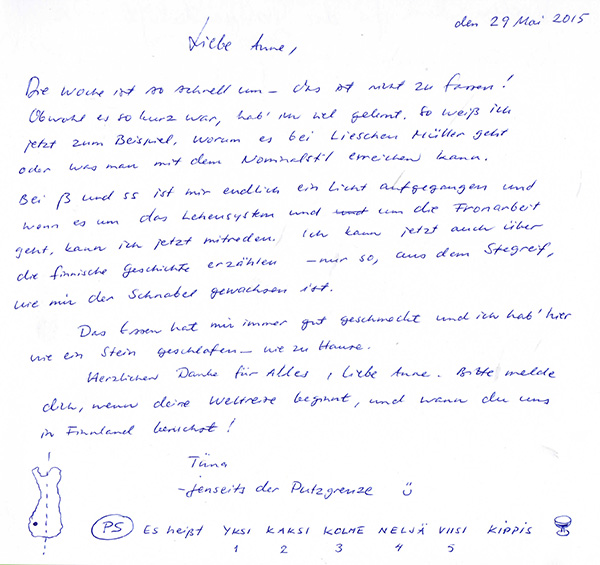 den 29 Mai 2015
Liebe Anne,
Die Woche ist so schnell um – das ist nicht zu fassen!
Obwohl es so kurz war, hab' ich viel gelernt. So weiß ich
jetzt zum Beispiel, worum es bei Lieschen Müller geht
oder was man mit dem Nominalstil erreichen kann.
Bei ß und ss ist mir endlich ein Licht aufgegangen und
wenn es um das Lehensystem und und um die Fronarbeit
geht, kann ich jetzt mitreden. Ich kann jetzt auch über
die finnische Geschichte erzählen – nur so, aus dem Stegreif,
wie mir der Schnabel gewachsen ist.
Das Essen hat mir immer gut geschmeckt und ich hab' hier
wie ein Stein geschlafen – wie zu Hause.
Herzlichen Danke für Alles, liebe Anne. Bitte melde
dich, wenn deine Weltreise beginnt, und wann du uns
in Finnland besuchst!
Tiina
- jenseits der Putzgrenze
PS Es heißt YKSI KAKSI KOLME NELJÄ VIISI KIPPIS
1 2 3 4 5